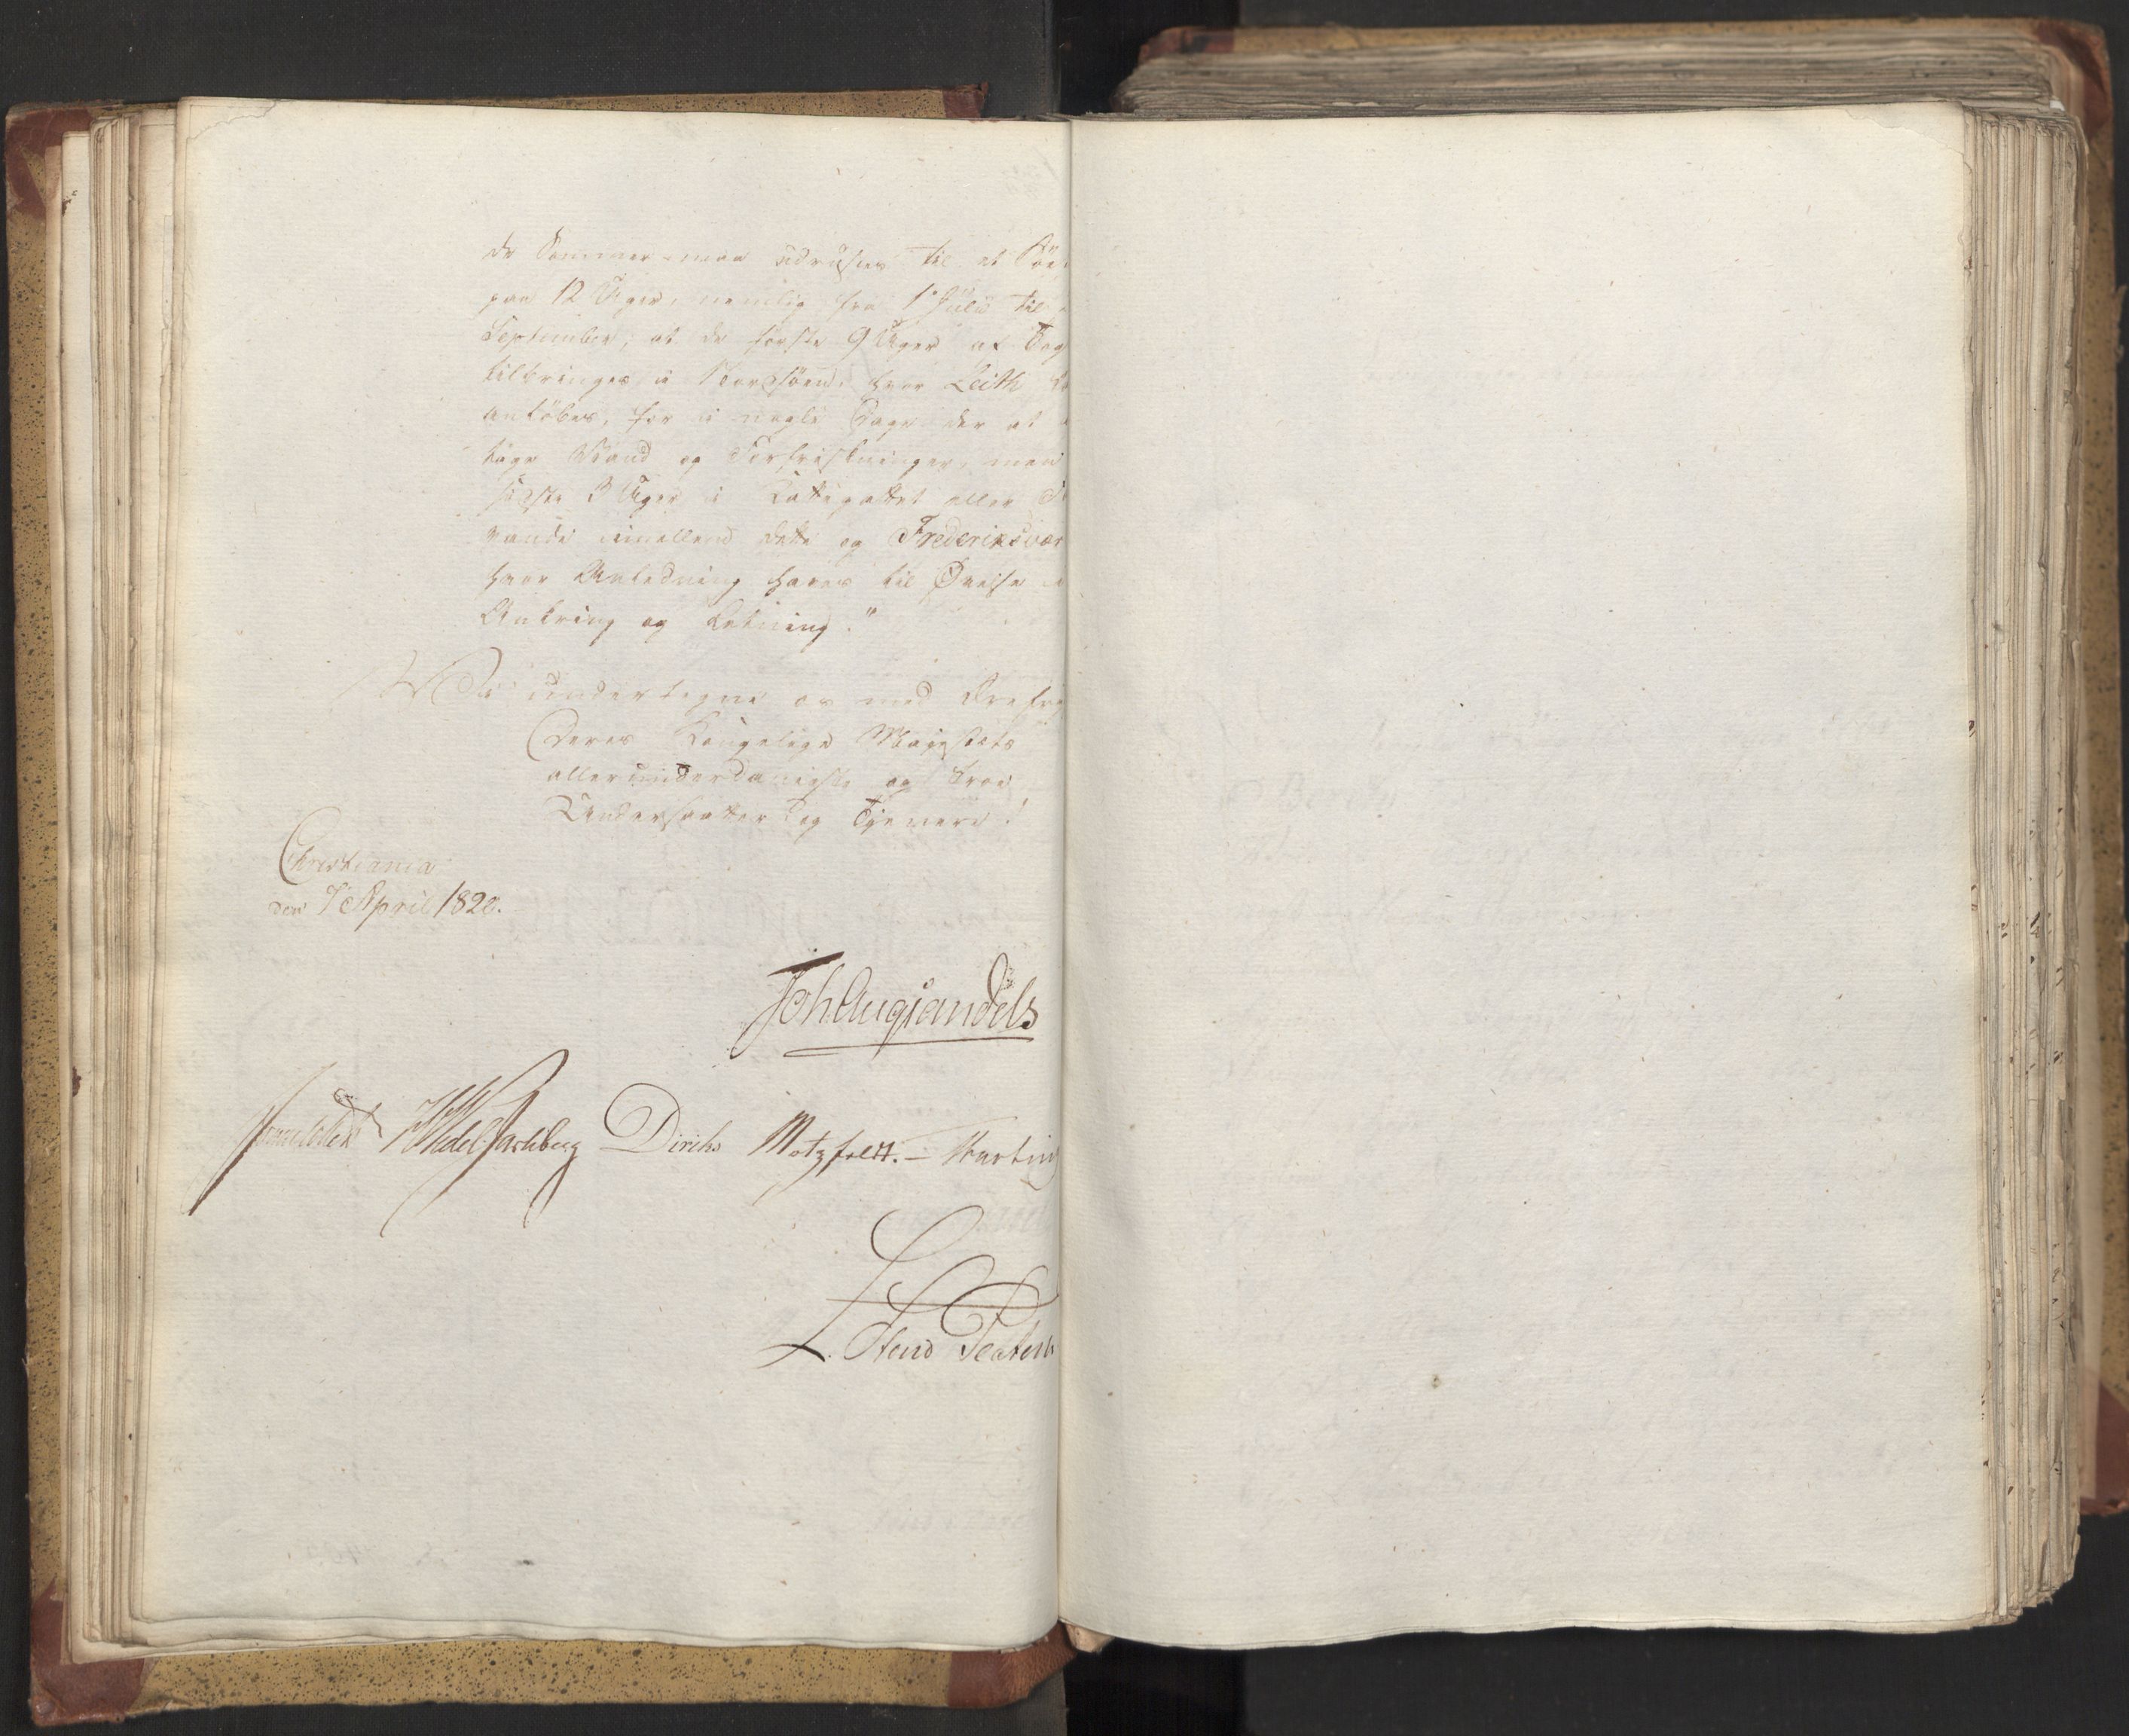 de Sommer maa udrustes til et Søe
paa 12 Uger, nemlig fra 1e Julii til
September; at de første 9 Uger af Tog
tilbringes i Nordsøen, hvor Leith
anløbes, for i nogle Dage der at
tage Vand og Forfriskninger, men
sidste 3 Uger i Cattegattet eller
vande imellem dette og Frederiksvær
hvor Anledning haves til Øvelse
Ankring og Letning."
Vi undertegne os med Ærefry
Deres Kongelige Majestæts
allerunderdanigste og troe
Undersaatter og Tjenere!
Christiania
den 7 April 1820.
Joh Aug Sandels
Sommerhielm HWedel Jarlsberg Diriks Motzfeldt. – Hartvig
L. Stoud Platou